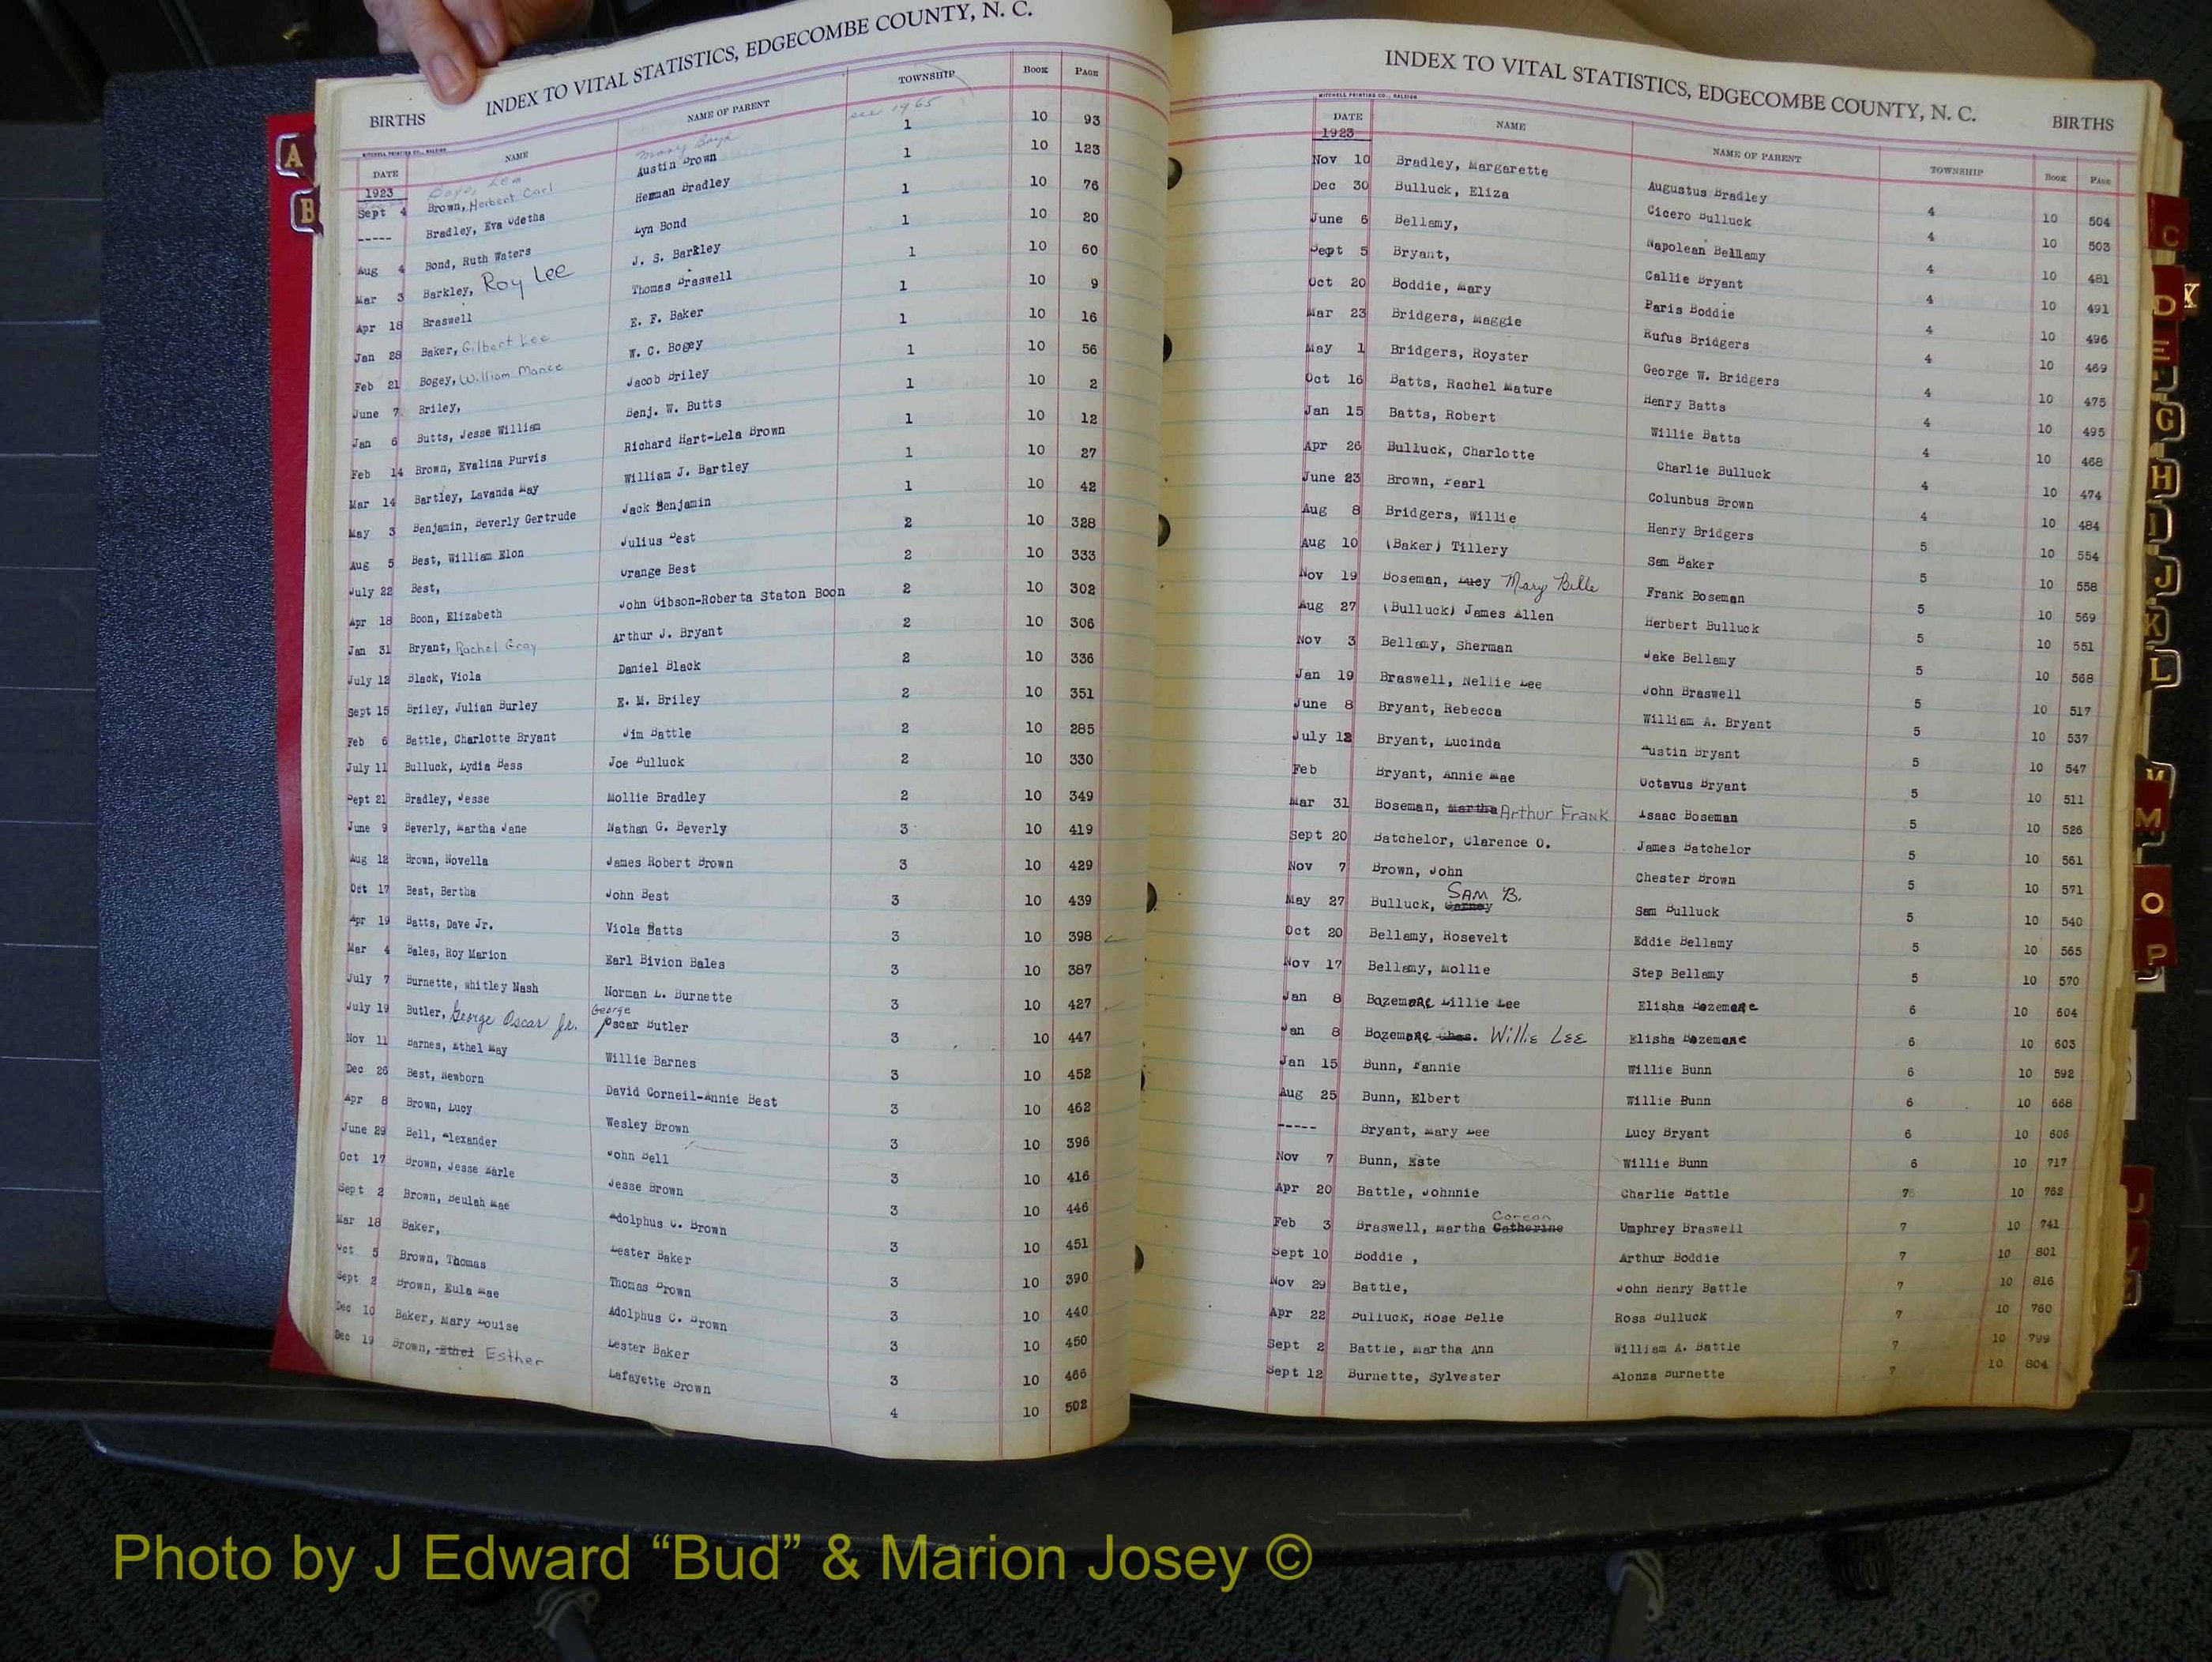 INDEX TO VITAL STATISTICS, EDGECOMBE COUNTY, N. C.
BIRTHS
MITCHELL PRINTING CO., RALEIGH
DATE NAME NAME OF PARENT TOWNSHIP BOOK PAGE
1923 Boyd, Lea Mary Boyd see 1965
Sept 4 Brown, Herbert Carl Austin Brown 1 10 93
----- Bradley, Eva Odetha Herman Bradley 1 10 123
Aug 4 Bond, Ruth Waters Lyn Bond 1 10 76
Mar 3 Barkley, Roy Lee J. S. Barkley 1 10 20
Apr 18 Braswell Thomas Braswell 1 10 60
Jan 28 Baker, Gilbert Lee E. F. Baker 1 10 9
Feb 21 Bogey, William Mance W. C. Bogey 1 10 16
June 7 Briley, Jacob Briley 1 10 56
Jan 6 Butts, Jesse William Benj. W. Butts 1 10 2
Feb 14 Brown, Evalina Purvis Richard Hart-Lela Brown 1 10 12
Mar 14 Bartley, Lavanda May William J. Bartley 1 10 27
May 3 Benjamin, Beverly Gertrude Jack Benjamin 1 10 42
Aug 5 Best, William Elon Julius Best 2 10 328
July 22 Best, Orange Best 2 10 333
Apr 18 Boon, Elizabeth John Gibson-Roberta Staton Boon 2 10 302
Jan 31 Bryant, Rachel Gray Arthur J. Bryant 2 10 306
July 12 Black, Viola Daniel Black 2 10 336
Sept 15 Briley, Julian Burley E. M. Briley 2 10 351
Feb 6 Battle, Charlotte Bryant Jim Battle 2 10 285
July 11 Bulluck, Lydia Bess Joe Bulluck 2 10 330
Sept 21 Bradley, Jesse Mollie Bradley 2 10 349
June 9 Beverly, Martha Jane Nathan G. Beverly 3 10 419
Aug 12 Brown, Novella James Robert Brown 3 10 429
Oct 17 Best, Bertha John Best 3 10 439
Apr 19 Batts, Dave Jr. Viola Batts 3 10 398
Mar 4 Bales, Roy Marion Earl Bivion Bales 3 10 387
July 7 Burnette, Whitley Nash Norman L. Burnette 3 10 427
July 19 Butler, George Oscar Jr. George Oscar Butler 3 10 447
Nov 11 Barnes, Ethel May Willie Barnes 3 10 452
Dec 26 Best, Newborn David Corneil-Annie Best 3 10 462
Apr 8 Brown, Lucy Wesley Brown 3 10 396
June 29 Bell, Alexander John Bell 3 10 416
Oct 17 Brown, Jesse Earle Jesse Brown 3 10 446
Sept 2 Brown, Beulah Mae Adolphus C. Brown 3 10 451
Mar 18 Baker, Lester Baker 3 10 390
Oct 5 Brown, Thomas Thomas Brown 3 10 440
Sept 2 Brown, Eula Mae Adolphus C. Brown 3 10 450
Dec 10 Baker, Mary Louise Lester Baker 3 10 466
Dec 19 Brown, Ethel Esther Lafayette Brown 4 10 502
INDEX TO VITAL STATISTICS, EDGECOMBE COUNTY, N. C.
BIRTHS
MITCHELL PRINTING CO., RALEIGH
DATE NAME NAME OF PARENT TOWNSHIP BOOK PAGE
1923
Nov 10 Bradley, Margarette Augustus Bradley 4 10 504
Dec 30 Bulluck, Eliza Cicero Bulluck 4 10 503
June 6 Bellamy, Napolean Bellamy 4 10 481
Sept 5 Bryant, Callie Bryant 4 10 491
Oct 20 Boddie, Mary Paris Boddie 4 10 496
Mar 23 Bridgers, Maggie Rufus Bridgers 4 10 469
May 1 Bridgers, Royster George W. Bridgers 4 10 475
Oct 16 Batts, Rachel Mature Henry Batts 4 10 495
Jan 15 Batts, Robert Willie Batts 4 10 468
Apr 26 Bulluck, Charlotte Charlie Bulluck 4 10 474
June 23 Brown, Pearl Columbus Brown 4 10 484
Aug 8 Bridgers, Willie Henry Bridgers 5 10 554
Aug 10 (Baker) Tillery Sam Baker 5 10 558
Nov 19 Boseman, Lucy Mary Belle Frank Boseman 5 10 569
Aug 27 (Bulluck) James Allen Herbert Bulluck 5 10 551
Nov 3 Bellamy, Sherman Jake Bellamy 5 10 568
Jan 19 Braswell, Nellie Lee John Braswell 5 10 517
June 8 Bryant, Rebecca William A. Bryant 5 10 537
July 12 Bryant, Lucinda Austin Bryant 5 10 547
Feb Bryant, Annie Mae Octavus Bryant 5 10 511
Mar 31 Boseman, Martha Arthur Frank Isaac Boseman 5 10 526
Sept 20 Batchelor, Clarence O. James Batchelor 5 10 561
Nov 7 Brown, John Chester Brown 5 10 571
May 27 Bulluck, SAM B. Sam Bulluck 5 10 540
Oct 20 Bellamy, Rosevelt Eddie Bellamy 5 10 565
Nov 17 Bellamy, Mollie Step Bellamy 5 10 570
Jan 8 Bozemore Lillie Lee Elisha Bozemore 6 10 604
Jan 8 Bozemore Chas. Willie Lee Elisha Bozemore 6 10 603
Jan 15 Bunn, Fannie Willie Bunn 6 10 592
Aug 25 Bunn, Elbert Willie Bunn 6 10 668
----- Bryant, Mary Lee Lucy Bryant 6 10 606
Nov 7 Bunn, Este Willie Bunn 6 10 717
Apr 20 Battle, Johnnie Charlie Battle 7 10 762
Feb 3 Braswell, Martha Catherine Corean Umphrey Braswell 7 10 741
Sept 10 Boddie , Arthur Boddie 7 10 801
Nov 29 Battle, John Henry Battle 7 10 816
Apr 22 Bulluck, Rose Belle Ross Bulluck 7 10 760
Sept 2 Battle, Martha Ann William A. Battle 7 10 799
Sept 12 Burnette, Sylvester Alonza Burnette 7 10 804
A
B
C
D
E
G
H
I
J
K
L
M
M
O
P
U
Photo by J Edward “Bud” & Marion Josey ©